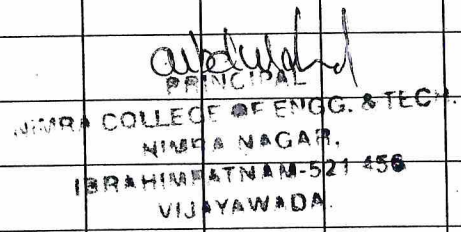 PRINCIPAL
NIMRA COLLEGE OF ENGG. & TECH.
NIMRA NAGAR,
IBRAHIMPATNAM-521 456
VIJAYAWADA.